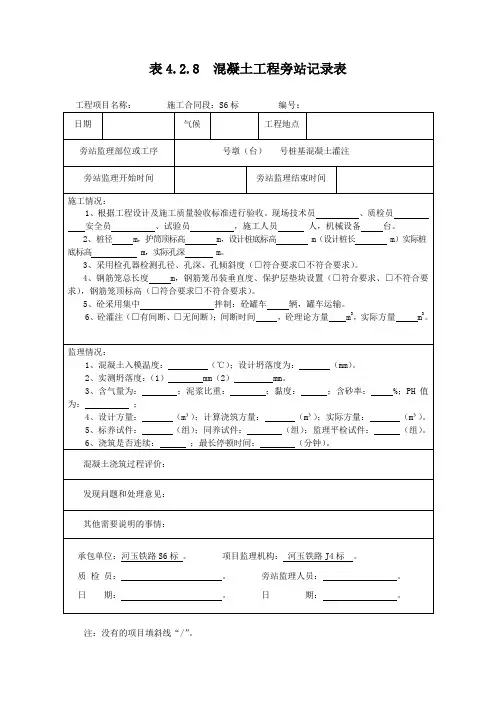 表4.2.8 混凝土工程旁站记录表
工程项目名称： 施工合同段：S6标 编号：
日期 气候 工程地点
旁站监理部位或工序 号墩（台） 号桩基混凝土灌注
旁站监理开始时间 旁站监理结束时间
施工情况：
1、根据工程设计及施工质量验收标准进行验收。现场技术员 、质检员
安全员 、试验员 ，施工人员 人，机械设备 台。
2、桩径 m，护筒顶标高 m，设计桩底标高 m（设计桩长 m）实际桩
底标高 m，实际孔深 m。
3、采用检孔器检测孔径、孔深、孔倾斜度（□符合要求□不符合要求）。
4、钢筋笼总长度 m，钢筋笼吊装垂直度、保护层垫块设置（□符合要求、□不符合要
求），钢筋笼顶标高（□符合要求□不符合要求）。
5、砼采用集中 拌制：砼罐车 辆，罐车运输。
6、砼灌注（□有间断、□无间断）；间断时间 ，砼理论方量 m³，实际方量 m³。
监理情况：
1、混凝土入模温度： （℃）；设计坍落度为： （mm）。
2、实测坍落度：（1） mm（2） mm。
3、含气量为： ；泥浆比重： ；黏度： ；含砂率： %；PH 值
为： ；
4、设计方量： （m³）；计算浇筑方量： （m³）；实际方量： （m³）。
5、标养试件： （组）；同养试件： （组）；监理平检试件： （组）。
6、浇筑是否连续： ；最长停顿时间： （分钟）。
混凝土浇筑过程评价：
发现问题和处理意见：
其他需要说明的事情：
承包单位：河玉铁路S6标 。 项目监理机构： 河玉铁路J4标 。
质 检 员： 。 旁站监理人员： 。
日 期： 。 日 期： 。
注：没有的项目填斜线“/”。